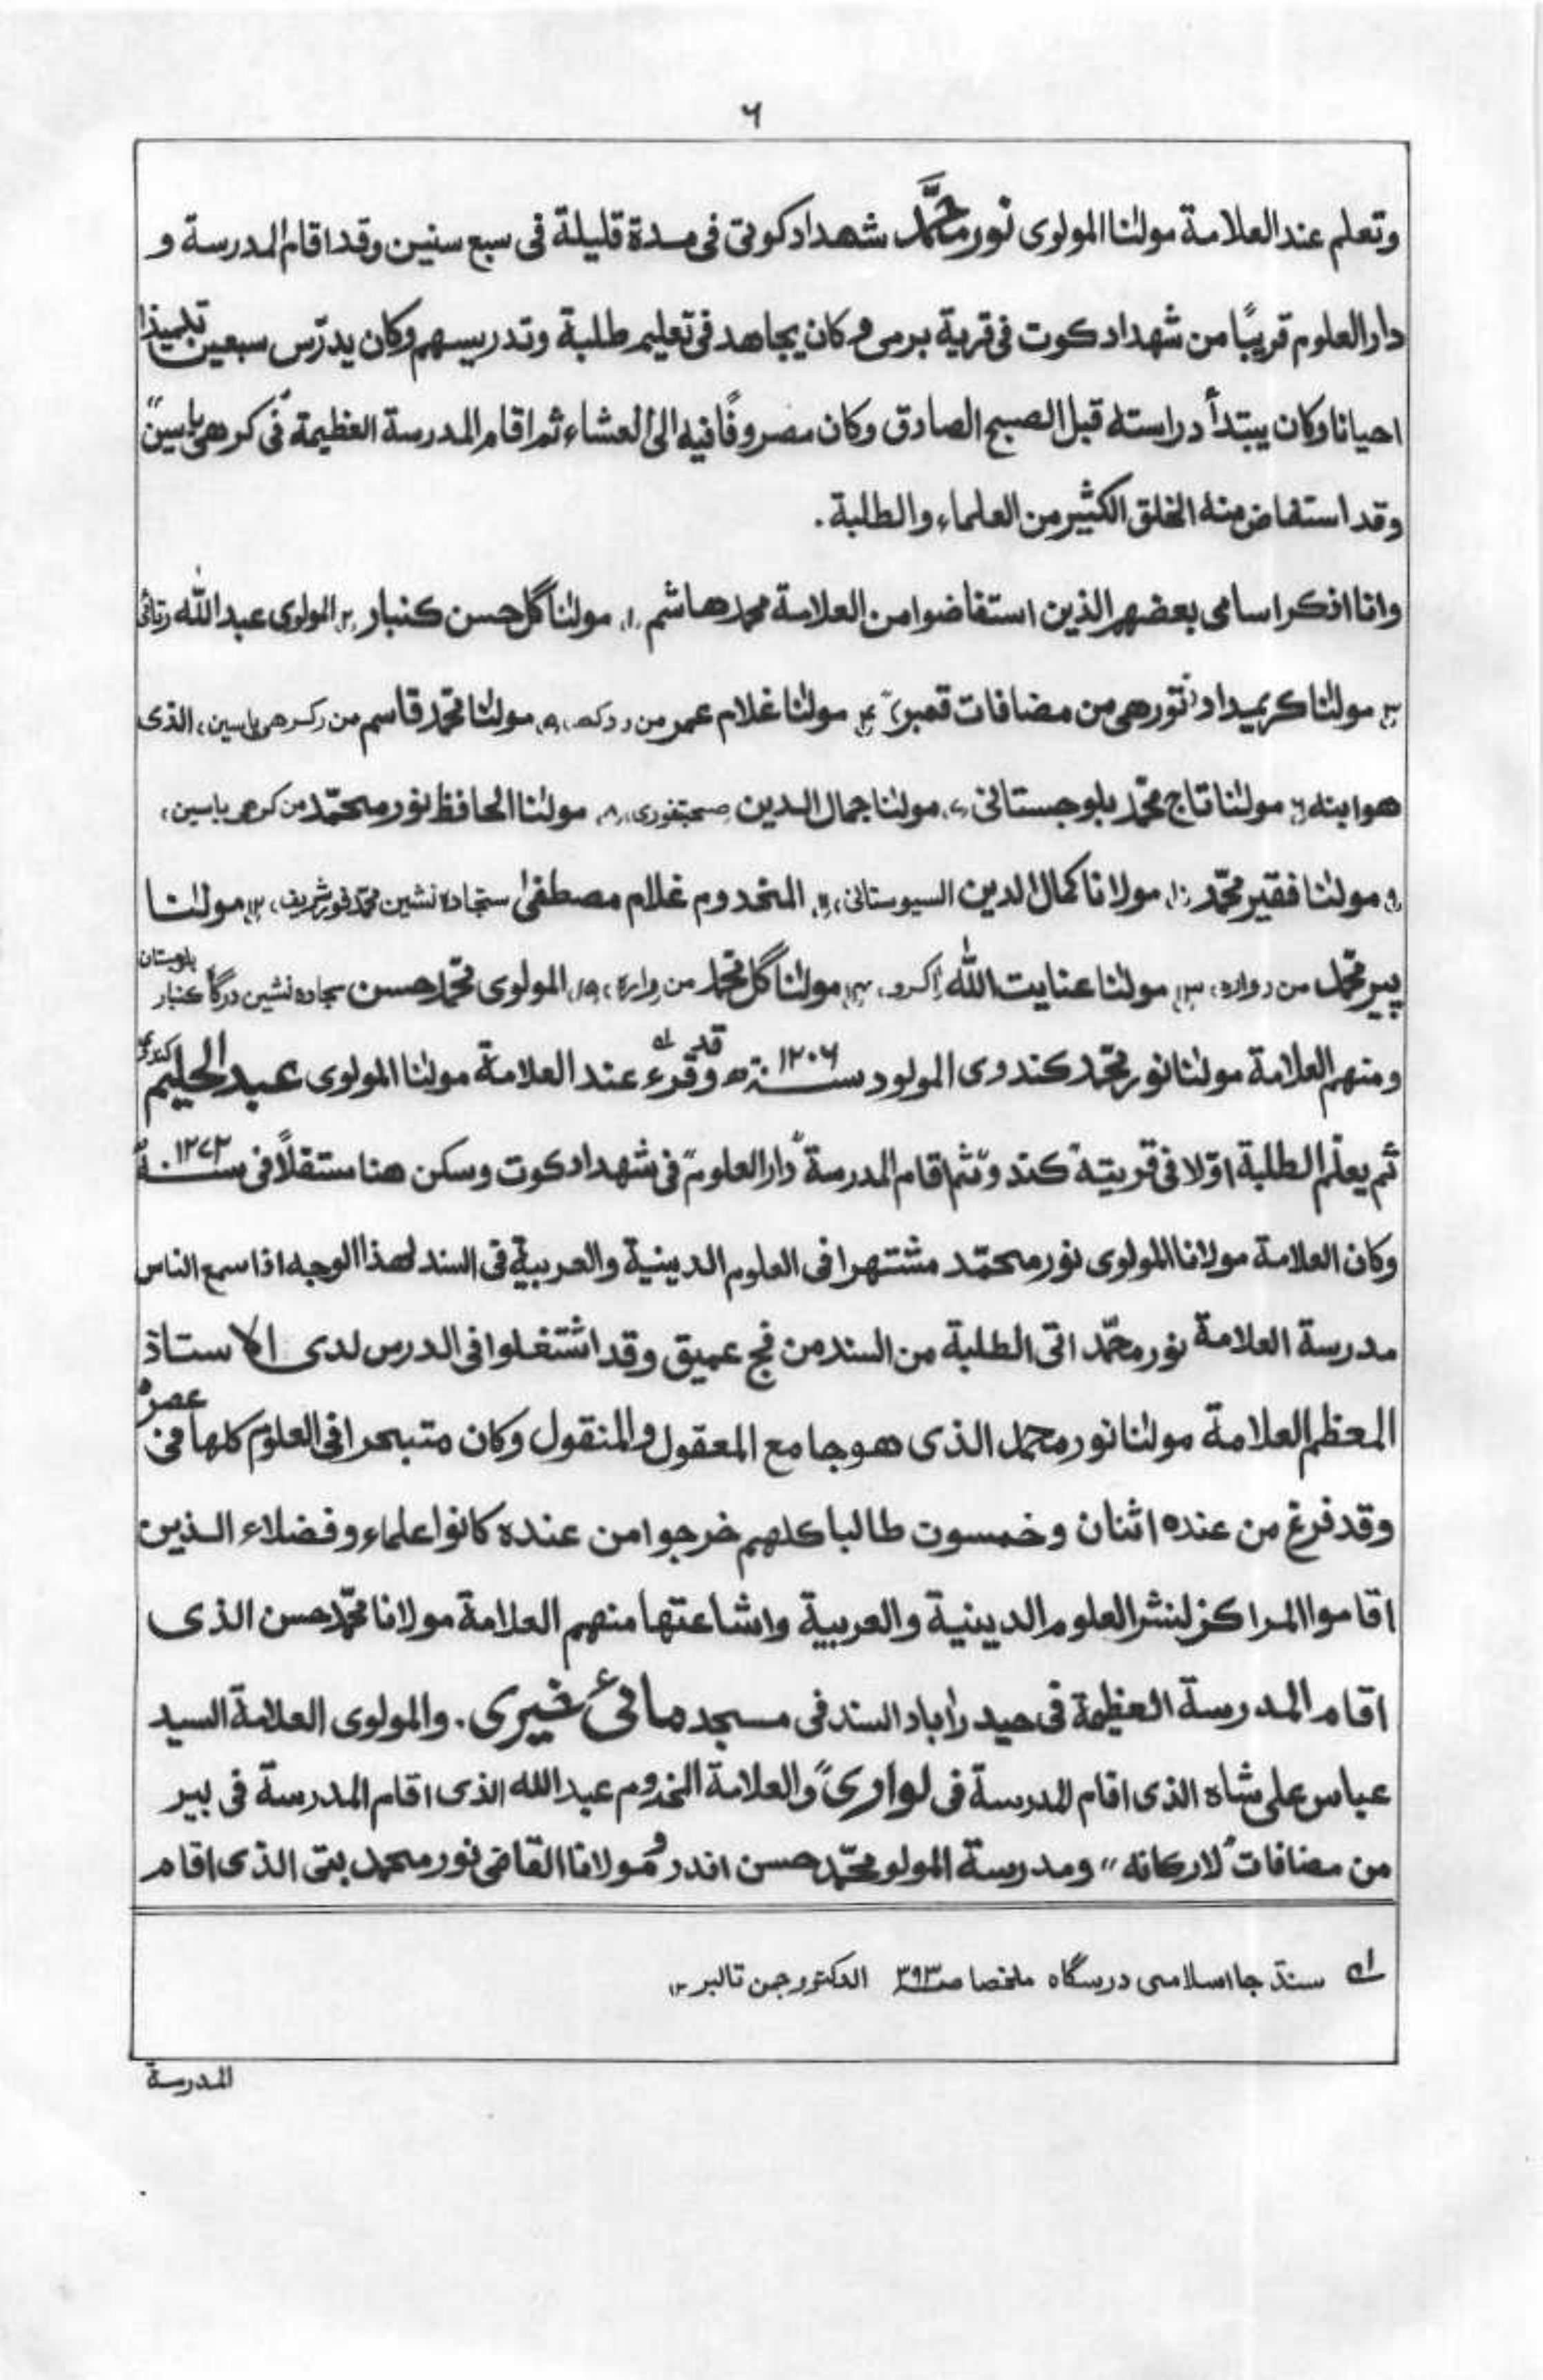 ٦
وتعلم عند العلامة مولٰنا المولوى نور محمَّد شهدادكوتى فى مدة قليلة فى سبع سنين وقد اقام المدرسة و
دار العلوم قريبًا من شهداد كوت فى قرية برمى وكان يجاهد فى تعليم طلبة وتدريسهم وكان يدرّس سبعين تلميذا
احيانا وكان يبتدأ دراسته قبل الصبح الصادق وكان مصروفًا فيه الى العشاء ثم اقام المدرسة العظيمة فى "كرهى ياسين"
وقد استفاض منه الخلق الكثير من العلماء والطلبة.
وانا اذكر اسامى بعضهم الذين استفاضوا من العلامة محمد هاشم ۱، مولٰنا گل حسن كنبار ۲، المولوى عبد الله
۳، مولٰنا كريمداد تورهى من مضافات قمبر ۴، مولٰنا غلام عمر من ودكه، ۵، مولٰنا محمّد قاسم من ركرهى ياسين، الذى
هو ابنه ٦، مولٰنا تاج محمّد بلوجستانى ۷، مولٰنا جمال الدين ۸، مولٰنا الحافظ نور محمّد من كرهى ياسين،
۹، مولٰنا فقير محمّد ۱۰، مولانا كمال الدين السيوستانى، ۱۱، المخدوم غلام مصطفىٰ سجاده نشين شريف، ۱۲، مولٰنا
پير محمّد من رواره، ۱۳، مولٰنا عنايت الله اكرو، ۱۴، مولٰنا گل محمّد من وارة، ۱۵، المولوى محمّد حسن سجاده نشين درگاه كنبار بلوچستان
ومنهم العلامة مولٰنا نور محمّد كندوى المولود سنة ۱۲۰٦ھ وقد قرء عند العلامة مولٰنا المولوى عبد الحليم كندوى
ثم يعلّم الطلبة اوّلا فى قريته "كندو" ثم اقام المدرسة "دار العلوم" فى شهداد كوت وسكن هنا مستقلًا فى سنة ۱۲۷۳
وكان العلامة مولانا المولوى نور محمّد مشتهرا فى العلوم الدينية والعربية فى السند لهذا الوجه اذا سمع الناس
مدرسة العلامة نور محمّد اتى الطلبة من السند من فج عميق وقد اشتغلوا فى الدرس لدى الاستاذ
المعظم العلامة مولٰنا نور محمد الذى هو جامع المعقول والمنقول وكان متبحرا فى العلوم كلها فى عصره
وقد فرغ من عنده اثنان وخمسون طالبا كلهم خرجوا من عنده كانوا علماء وفضلاء الذين
اقاموا المراكز لنشر العلوم الدينية والعربية واشاعتها منهم العلامة مولانا محمّد حسن الذى
اقام المدرسة العظيمة فى حيدراباد السند فى مسجد مائى خيرى. والمولوى العلامة السيد
عباس على شاه الذى اقام المدرسة فى لوارى" والعلامة المخدوم عبد الله الذى اقام المدرسة فى بير
من مضافات "لاركانه" ومدرسة المولو محمّد حسن اندر ومولانا القاضى نور محمد بتى الذى اقام
لہ سنڌ جا اسلامى درسگاه ملخصا صـ۳۹۳ الدكتور جمن تالبر ۱۲
المدرسة